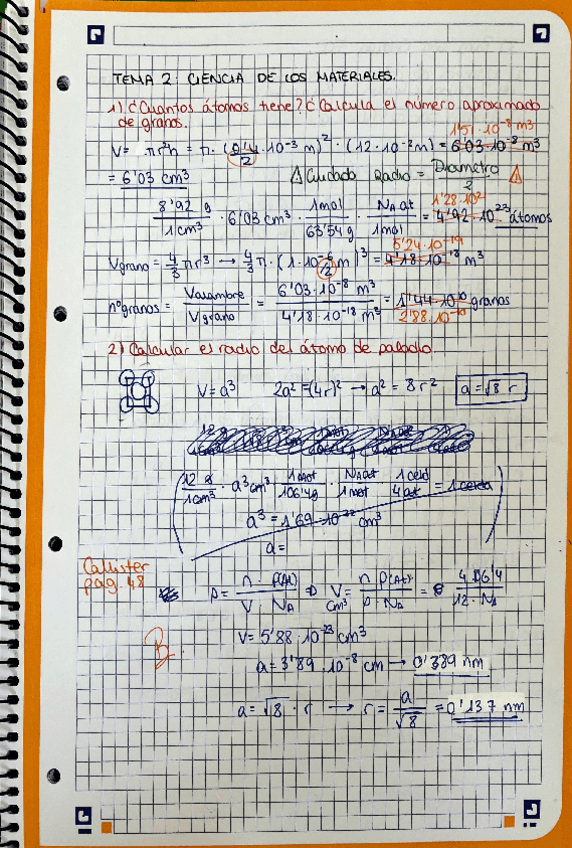 TEMA 2: CIENCIA DE LOS MATERIALES.
1) ¿Cuantos átomos tiene? ¿Calcula el número aproximado
de granos.
1'51 · 10⁻⁸ m³
V = πr²h = π · ( /2 · 10⁻³ m)² · (12 · 10⁻² m) = 6'03 · 10⁻⁸ m³
= 6'03 cm³ ⚠ Cuidado Radio = Diametro/2 ⚠
1'28 · 10²
8'92 g/1cm³ · 6'03 cm³ · 1mol/63'54 g · NA at/1mol = 4'92 · 10²³ átomos
5'24 · 10⁻¹⁹
Vgrano = 4/3 πr³ → 4/3 π · (1 · 10⁻⁶/2 m)³ = 4'18 · 10⁻¹⁸ m³
nºgranos = Valambre/Vgrano = 6'03 · 10⁻⁸ m³/4'18 · 10⁻¹⁸ m³ = 1'44 · 10¹⁰ granos
2'88 · 10⁻¹⁰
2) Calcular el radio del átomo de paladio.
V = a³ 2a² = (4r)² → a² = 8r² a = √8 r
12 g/1cm³ · a³cm³ · 1mol/106'4g · NA at/1mol · 1celd/4at = 1 celda
a³ = 1'69 · 10⁻²² cm³
a =
Callister
pag 48
ρ = n · P(At)/V · NA ⇒ V cm³ = n P(At)/ρ · NA = 4 · 106'4/12 · NA
V = 5'88 · 10⁻²³ cm³
a = 3'89 · 10⁻⁸ cm → 0'389 nm
B.
a = √8 · r → r = a/√8 = 0'137 nm